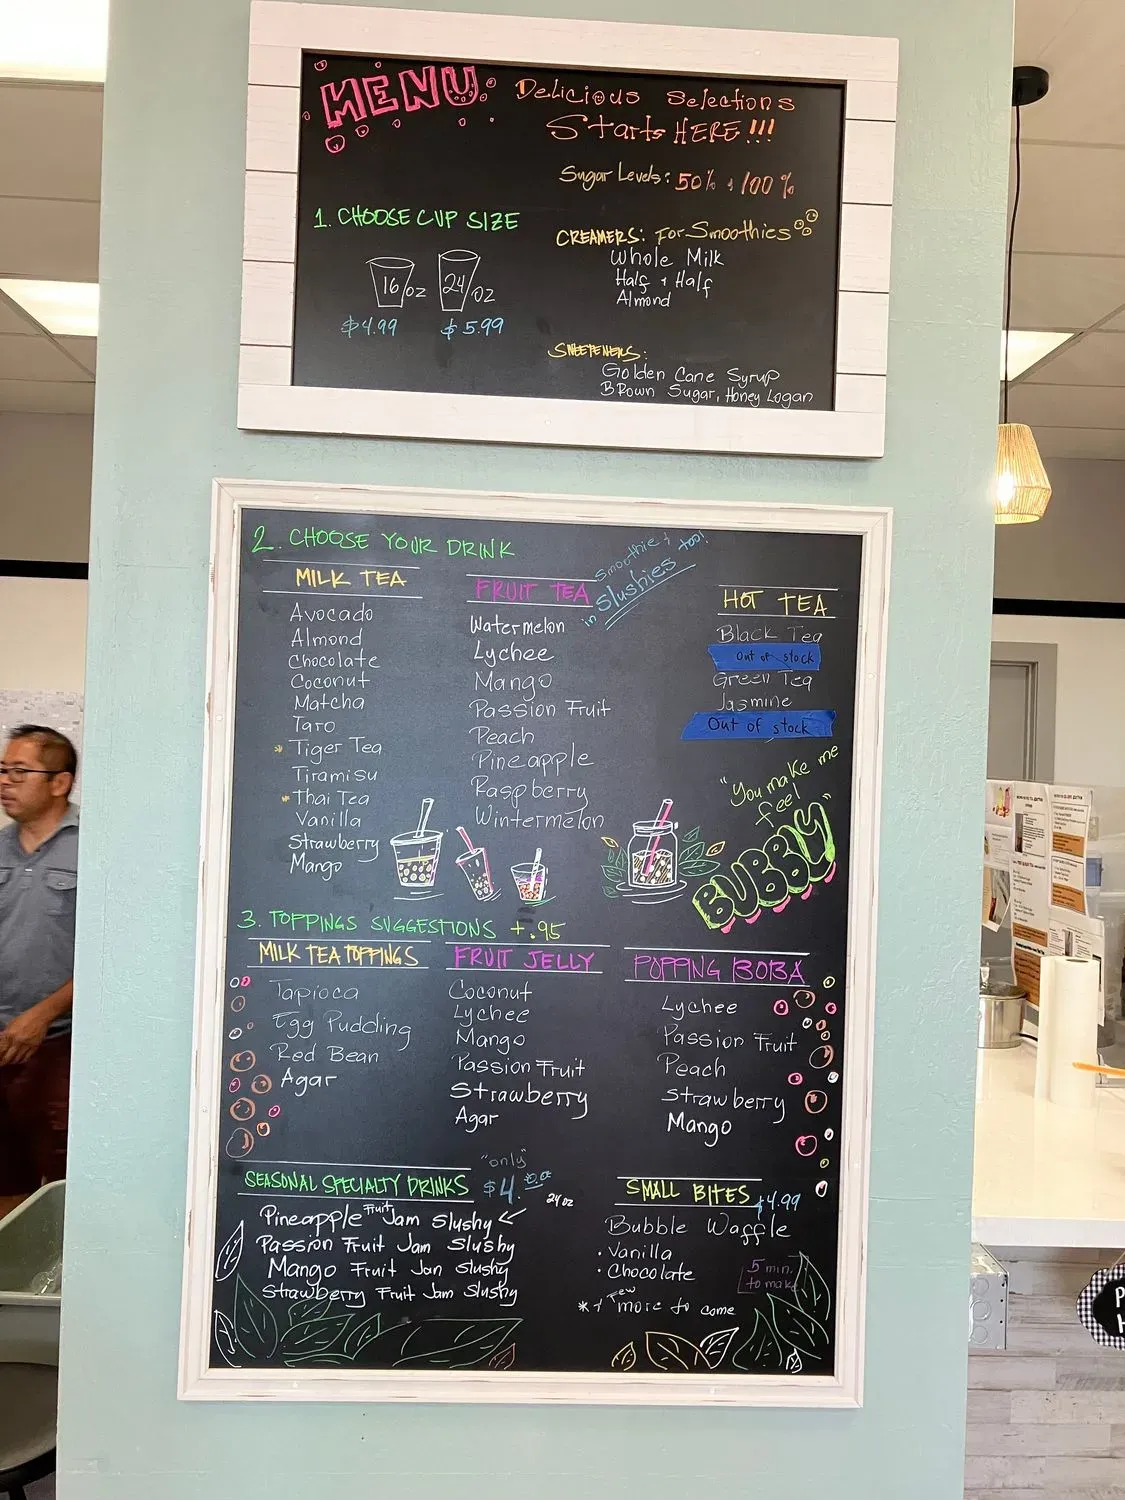 MENU
Delicious Selections
Starts HERE!!!
Sugar Levels: 50% + 100%
1. CHOOSE CUP SIZE
16/oz 24/oz
$4.99 $5.99
CREAMERS: For Smoothies
Whole Milk
Half + Half
Almond
SWEETENERS:
Golden Cane Syrup
Brown Sugar, Honey Logan
2. CHOOSE YOUR DRINK
MILK TEA
Avocado
Almond
Chocolate
Coconut
Matcha
Taro
* Tiger Tea
Tiramisu
* Thai Tea
Vanilla
Strawberry
Mango
FRUIT TEA
in Smoothie +
slushies too!
Watermelon
Lychee
Mango
Passion Fruit
Peach
Pineapple
Raspberry
Wintermelon
HOT TEA
Black Tea
Out of stock
Green Tea
Jasmine
Out of stock
"You make me
feel
BUBBLY"
3. TOPPINGS SUGGESTIONS +.95
MILK TEA TOPPINGS
Tapioca
Egg Pudding
Red Bean
Agar
FRUIT JELLY
Coconut
Lychee
Mango
Passion Fruit
Strawberry
Agar
POPPING BOBA
Lychee
Passion Fruit
Peach
Strawberry
Mango
SEASONAL SPECIALTY DRINKS
"only"
$4.
24 oz
Pineapple Fruit Jam Slushy
Passion Fruit Jam Slushy
Mango Fruit Jan Slushy
Strawberry Fruit Jam Slushy
SMALL BITES $4.99
Bubble Waffle
• Vanilla
• Chocolate
5 min.
to make
* + Few more to come